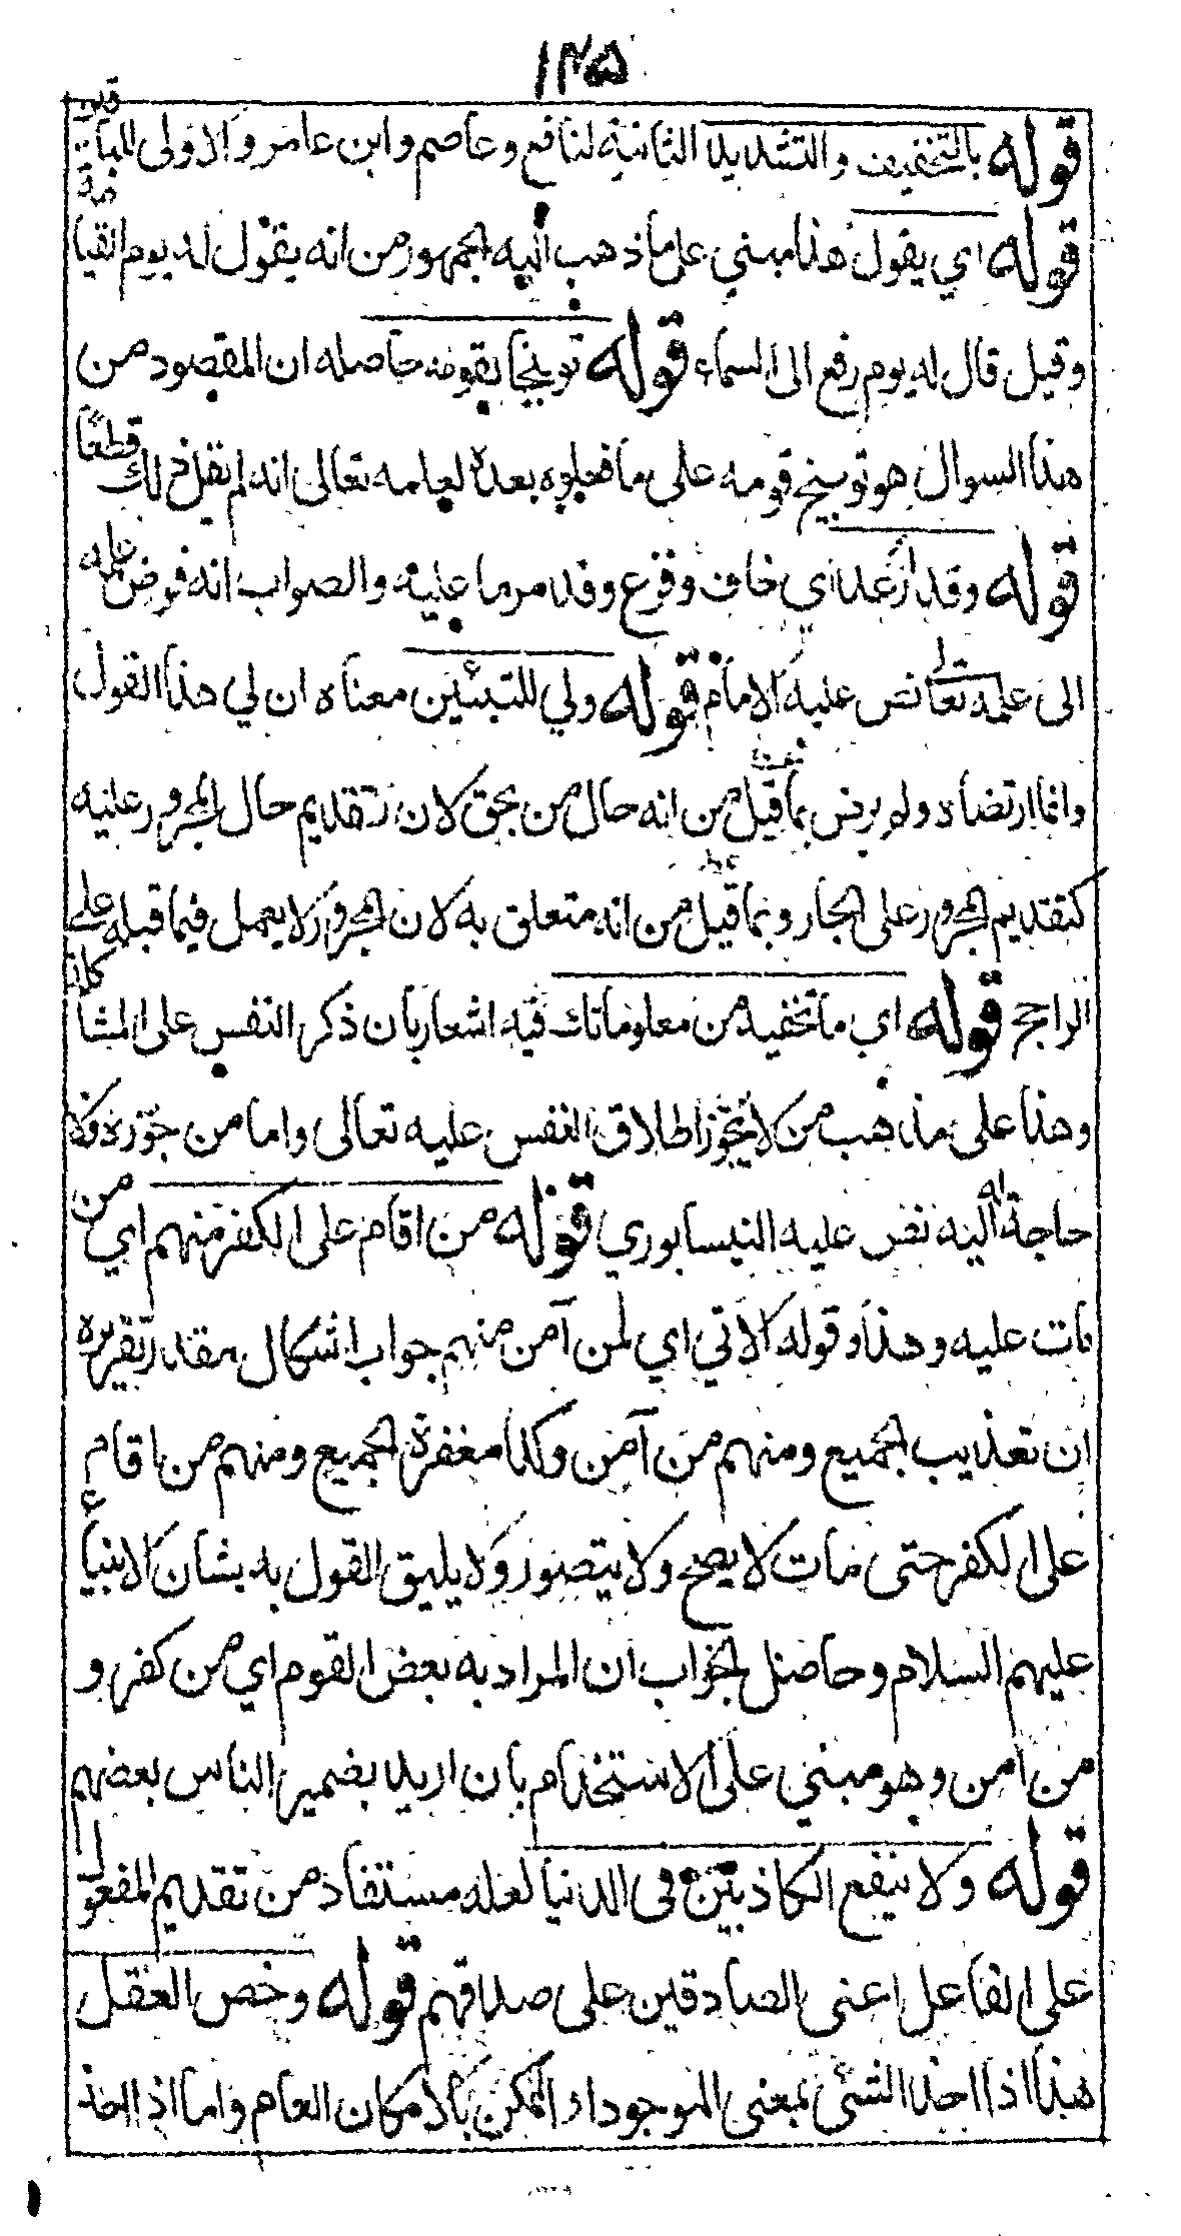 ١٢٥
قوله بالتخفيف والتشديد الثانية لنافع وعاصم وابن عامر والاولى للباقين
قوله اي يقول هذا مبني على ما ذهب اليه الجمهور من انه يقول له يوم القيامة
وقيل قال له يوم رفع الى السماء قوله توبيخا لقومه حاصله ان المقصود من
هذا السوال هو توبيخ قومه على ما فعلوه بعده لعلمه تعالى انه لم يقل ذلك قطعا
قوله وقد ارعد اي خاف وقرع وقد مر ما عليه والصواب انه فوض علمه
الى علمه تعالى نص عليه الامام قوله ولي للتبيين معناه ان لي هذا القول
وانما ارتضاه ولم يرض بما قيل من انه حال من بحق لان تقديم حال المجرور عليه
كتقديم المجرور على الجار وبما قيل من انه متعلق به لان المجرور لا يعمل فيما قبله على
الراجح قوله اي ما تخفيه من معلوماتك فيه اشعار بان ذكر النفس على المشاكلة
وهذا على مذهب من لا يجوز اطلاق النفس عليه تعالى واما من جوزه فلا
حاجة له اليه نص عليه النيسابوري قوله من اقام على الكفر منهم اي من
مات عليه وهذا وقوله الاتي اي لمن آمن منهم جواب اشكال مقدر تقريره
ان تعذيب الجميع ومنهم من آمن وكذا مغفرة الجميع ومنهم من اقام
على الكفر حتى مات لا يصح ولا يتصور ولا يليق القول به بشان الانبياء
عليهم السلام وحاصل الجواب ان المراد به بعض القوم اي من كفر و
من امن وهو مبني على الاستخدام بان اريد بضمير الناس بعضهم
قوله ولا ينفع الكاذبين في الدنيا لعله مستفاد من تقديم المفعول
على الفاعل اعنى الصادقين على صدقهم قوله وخص العقل
هذا اذا اخذ الشئ بمعنى الموجود او الممكن بالامكان العام واما اذا اخذ